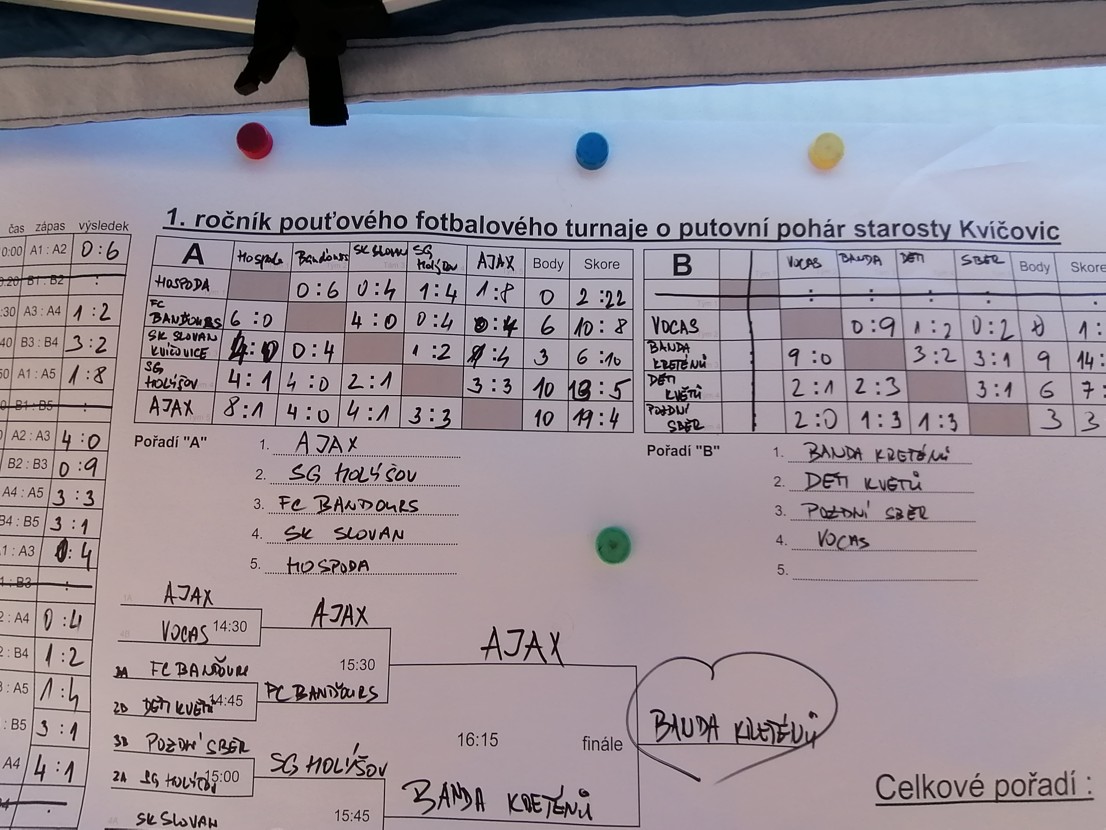 1. ročník pouťového fotbalového turnaje o putovní pohár starosty Kvíčovic
čas zápas výsledek
0:00 A1 : A2 0:6
B1 : B2 :
:30 A3 : A4 1:2
40 B3 : B4 3:2
50 A1 : A5 1:8
0 B1 : B5 :
A2 : A3 4:0
B2 : B3 0:9
A4 : A5 3:3
B4 : B5 3:1
1 : A3 0:4
1 : B3 :
2 : A4 0:4
2 : B4 1:2
3 : A5 1:4
: B5 3:1
A4 4:1
:
A Hospoda Bandours SK SLOVAN SG Holýšov AJAX Body Skore
HOSPODA 0:6 0:4 1:4 1:8 0 2:22
FC BANDOURS 6:0 4:0 0:4 0:4 6 10:8
SK SLOVAN KVÍČOVICE 4:0 0:4 1:2 1:4 3 6:10
SG HOLÝŠOV 4:1 4:0 2:1 3:3 10 13:5
AJAX 8:1 4:0 4:1 3:3 10 19:4
B VOCAS BANDA DETI SBER Body Skore
: : : : :
VOCAS 0:9 1:2 0:2 0 1:
BANDA KRETÉNŮ 9:0 3:2 3:1 9 14:
DETI KVĚTŮ 2:1 2:3 3:1 6 7:
POZDNÍ SBER 2:0 1:3 1:3 3 3
Pořadí "A"
1. AJAX
2. SG HOLÝŠOV
3. FC BANDOURS
4. SK SLOVAN
5. HOSPODA
Pořadí "B"
1. BANDA KRETÉNŮ
2. DETI KVĚTŮ
3. POZDNÍ SBER
4. VOCAS
5.
AJAX
VOCAS 14:30
AJAX
3A FC BANĎOURS
2B DETI KVETŮ 14:45
15:30
FC BANĎOURS
AJAX
3B POZDNÍ SBER
2A SG HOLÝŠOV 15:00
SG HOLÝŠOV
16:15 finále
BANDA KRETÉNŮ
SK SLOVAN
15:45
BANDA KRETÉNŮ
Celkové pořadí :